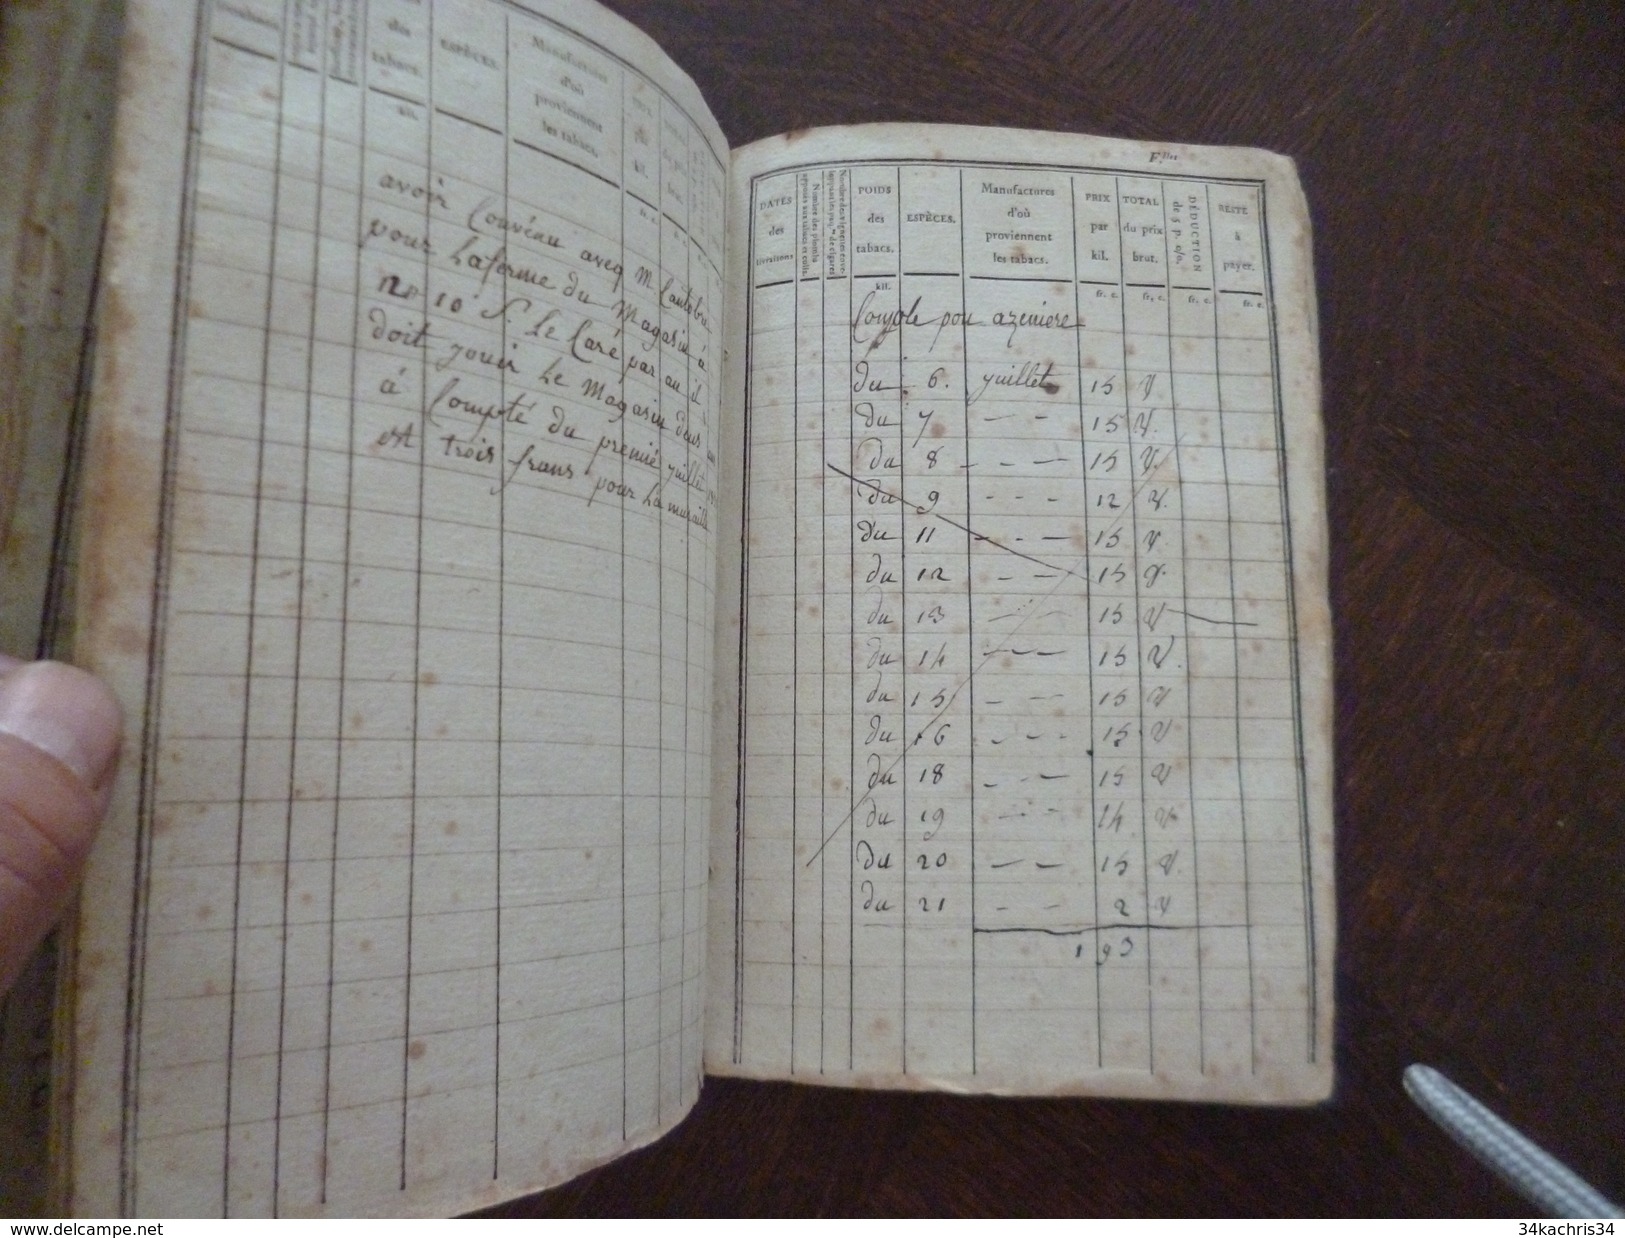 des
tabacs.
ESPÈCES.
Manufactures
d'où
proviennent
les tabacs.
kil.
fr. c.
avoir Convénu aveq M Cantobre
pour Laferme du Magasin à
no 10 S. Le Caré par an il
doit jouir Le Magasin deus
à Compté du premié juillet
et trois frans pour La muraille
F.lles
DATES
des
livraisons
POIDS
des
tabacs.
kil.
ESPÈCES.
Manufactures
d'où
proviennent
les tabacs.
PRIX
par
kil.
fr. c.
TOTAL
du prix
brut.
fr. c.
DÉDUCTION
de 5 p. o/o.
fr. c.
RESTE
à
payer.
fr. c.
Compte pou azeniere
Du 6. juillet 15
du 7 — — 15
Du 8 — — — 15
Du 9 - - - 12
Du 11 - - — 15
Du 12 — — 15
du 13 — — 15
du 14 — — — 15
du 15 — — 15
Du 16 - - — 15
Du 18 - - — 15
du 19 - - - 14
Du 20 — — 15
du 21 - — 2
193
www.delcampe.net
34kachris34